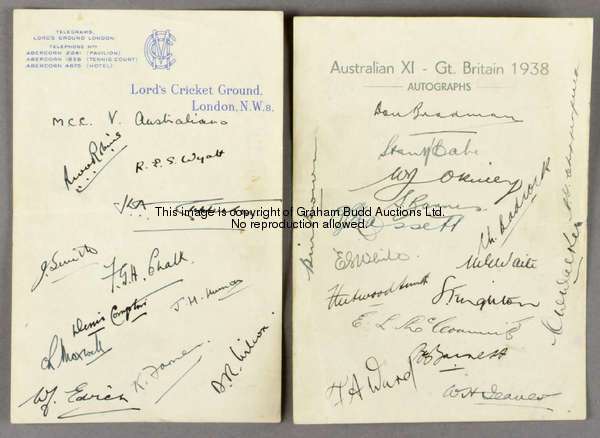 TELEGRAMS,
LORD'S GROUND LONDON.
TELEPHONE Nos.
ABERCORN 2241 (PAVILION)
ABERCORN 1838 (TENNIS COURT)
ABERCORN 4675 (HOTEL)
MCC
Lord's Cricket Ground,
London, N.W.8.
M.C.C. V. Australians
R. E. S. Wyatt
J. Smith
F. G. H. Chalk
Denis Compton
J. H. Human
C R Maxwell
W J Edrich
K. Farnes
A. R. Wilson
Australian XI - Gt. Britain 1938
AUTOGRAPHS
Don Bradman
Stan McCabe
W J O'Reilly
S Barnes
A L Hassett
C. L. Badcock
E S White
M G Waite
Fleetwood Smith
J Fingleton
E. L. McCormick
B A Barnett
F A Ward
W H Jeanes
C W Walker
This image is copyright of Graham Budd Auctions Ltd.
No reproduction allowed.